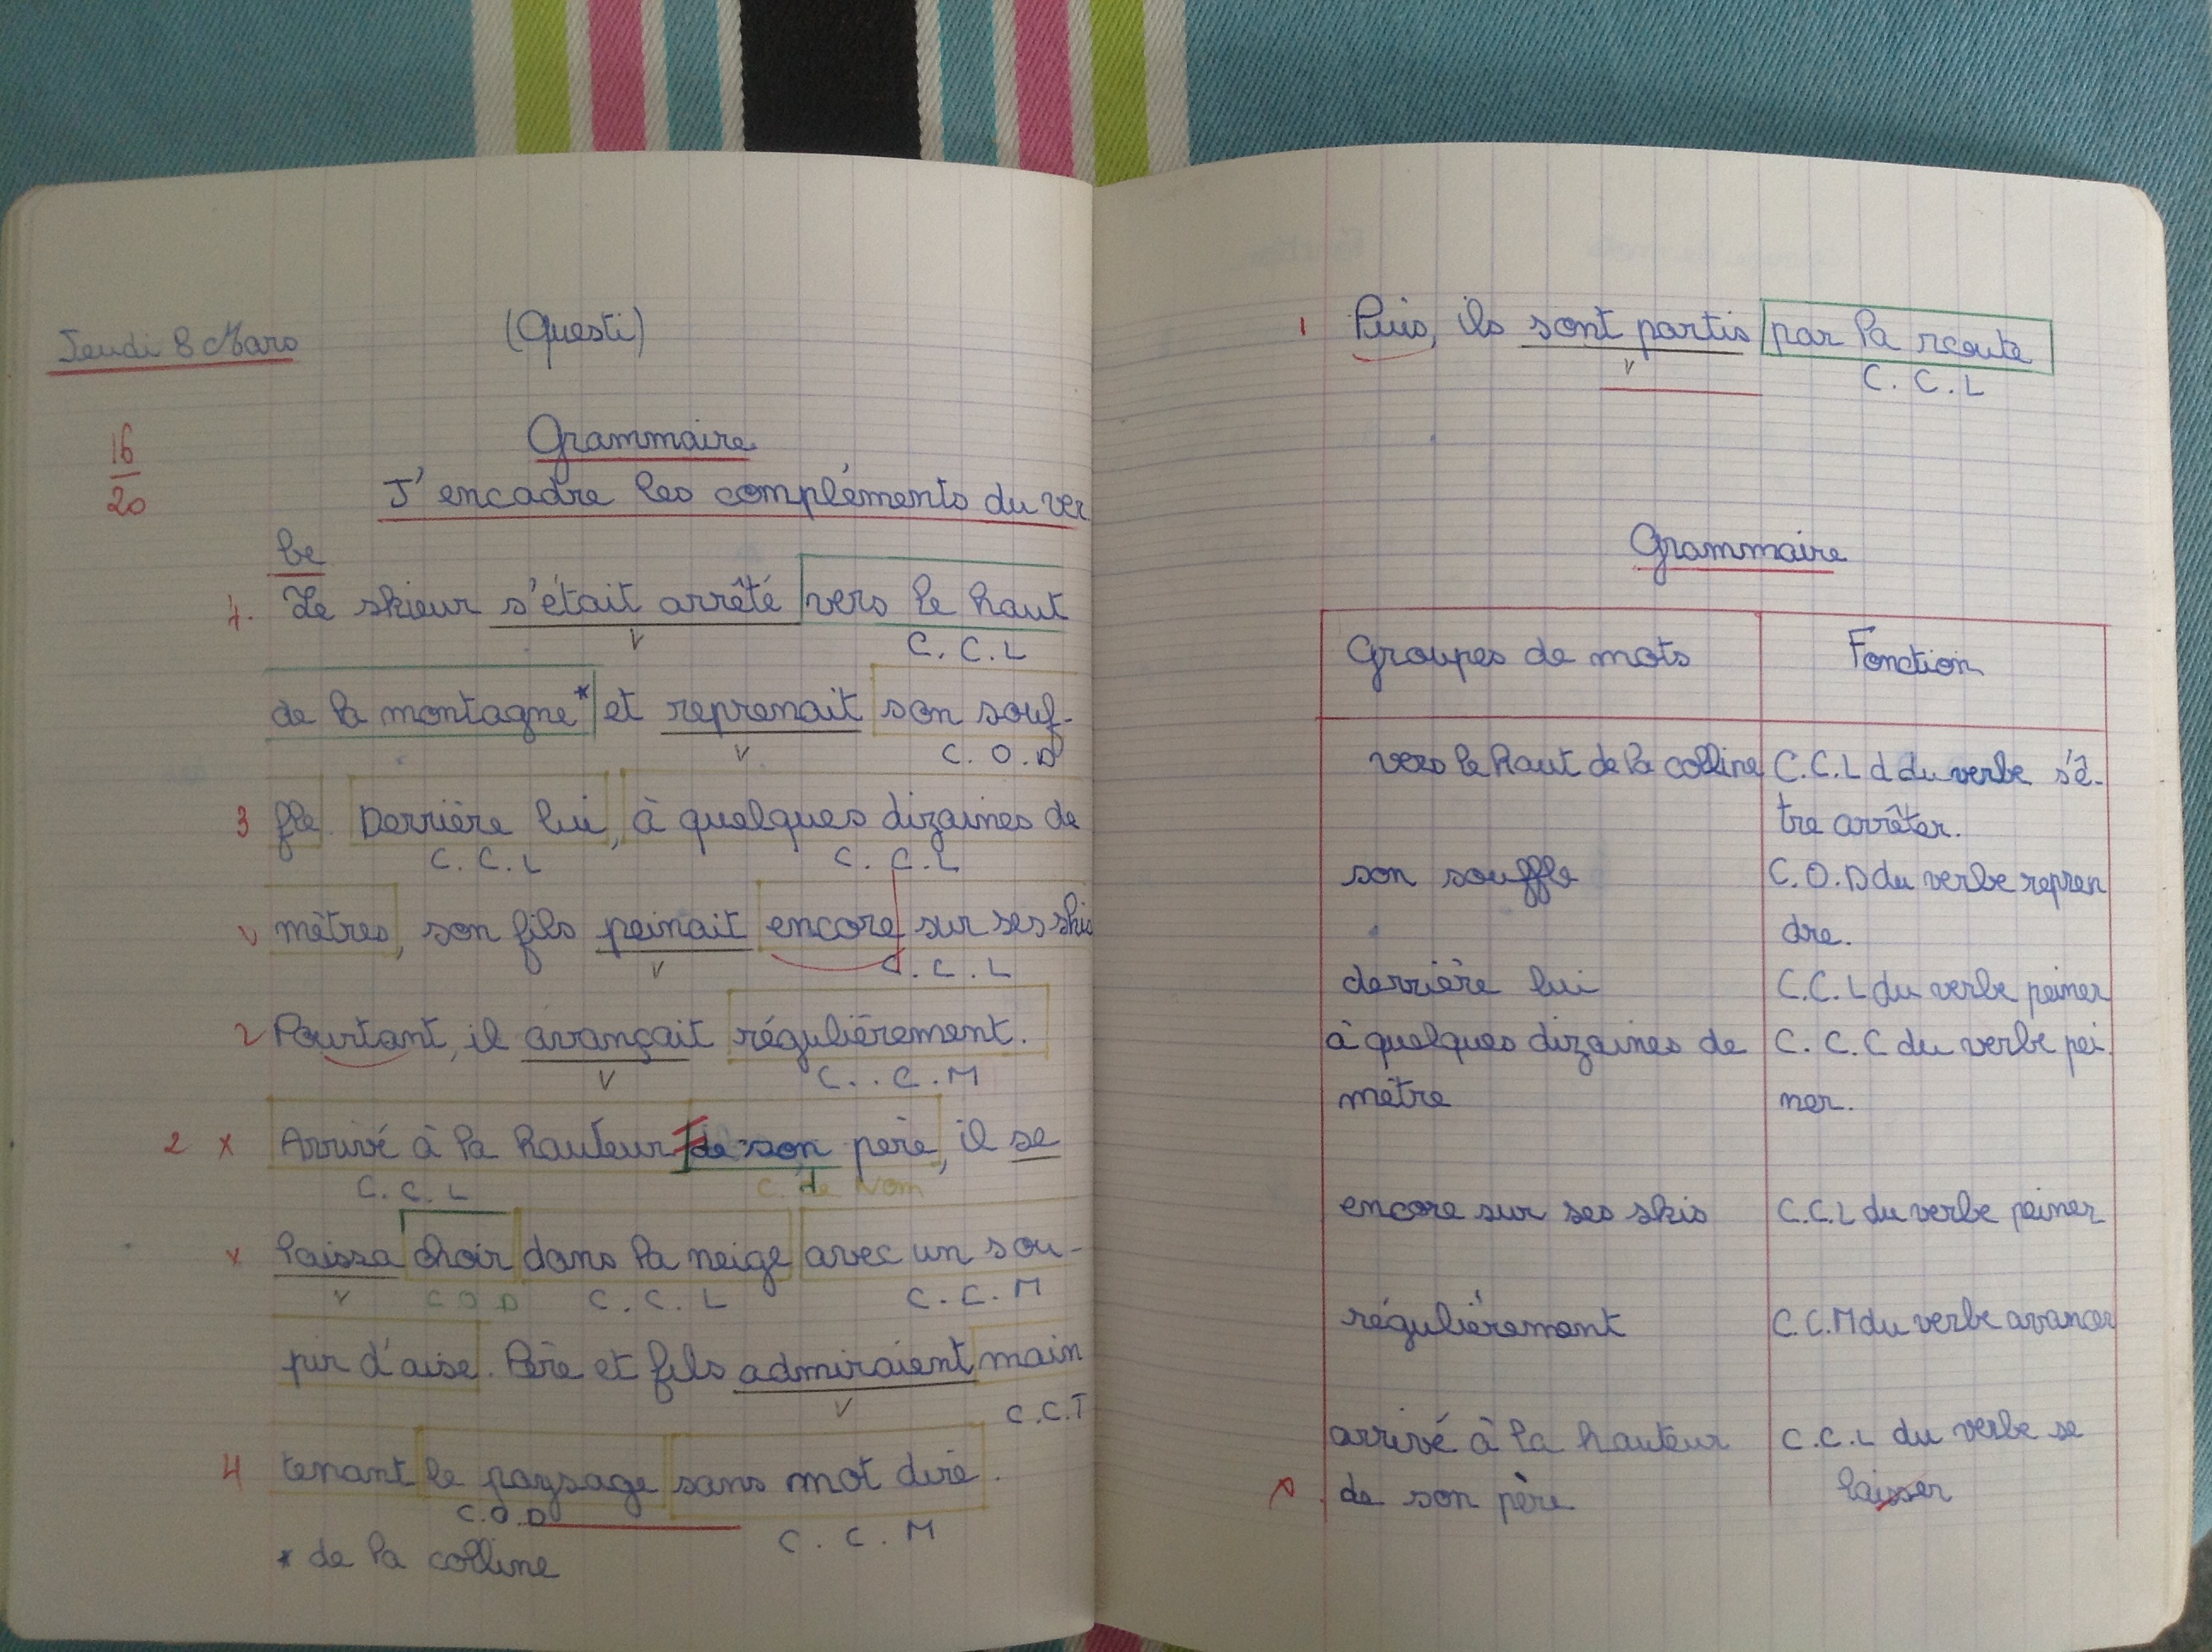 Jeudi 8 Mars
(Questi)
Grammaire
16
20
J'encadre les compléments du ver
be
1. Le skieur s'était arrêté vers le haut
V C.C.L
de la montagne* et reprenait son souf-
V C.O.D
3 fle. Derrière lui, à quelques dizaines de
C.C.L C.C.L
mètres, son fils peinait encore sur ses skis
V C.C.L
2 Pourtant, il avançait régulièrement.
V C.C.M
2 x Arrivé à la hauteur de son père, il se
C.C.L C. de Nom
laissa choir dans la neige avec un sou-
V C O D C.C.L C.C.M
pir d'aise. Père et fils admiraient main
V C.C.T
4 tenant le paysage sans mot dire.
C.O.D C.C.M
* de la colline
1 Puis, ils sont partis par la route
V C.C.L
Grammaire
Groupes de mots Fonction
vers le haut de la colline C.C.L du verbe s'ê-
tre arrêter.
son souffle C.O.D du verbe repren
dre.
derrière lui C.C.L du verbe peiner
à quelques dizaines de C.C.C du verbe pei
mètre ner.
encore sur ses skis C.C.L du verbe peiner
régulièrement C.C.M du verbe avancer
arrivé à la hauteur C.C.L du verbe se
de son père laisser